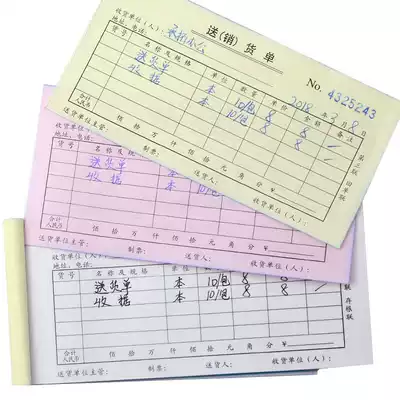 送(销)货单
收货单位(人):
地址、电话:
No. 4325243
2018 年 3 月 8 日
货号 名称及规格 单位 数量 单价 金额 备注
送货单 本 10/包 8 8
收据 本 10/包 8 8
合计人民币 佰 拾 万 仟 佰 拾 元 角 分 ¥
送货单位主管: 制票: 送货人: 收货单位(人):
第三联 回单联
收货单位(人):
地址、电话:
货号 名称及规格 单
送货单 本
收据 本 10/
合计人民币 佰 拾 万 仟 佰 拾 元 角 分 ¥
送货单位主管: 制票: 送货人: 收货单位(人):
地址、电话:
货号 名称及规格 单
送货单 本 10/包 8 8
收据 本 10/包 8 8
合计人民币 佰 拾 万 仟 佰 拾 元 角 分 ¥
送货单位主管: 制票: 送货人: 收货单位(人):
存根联